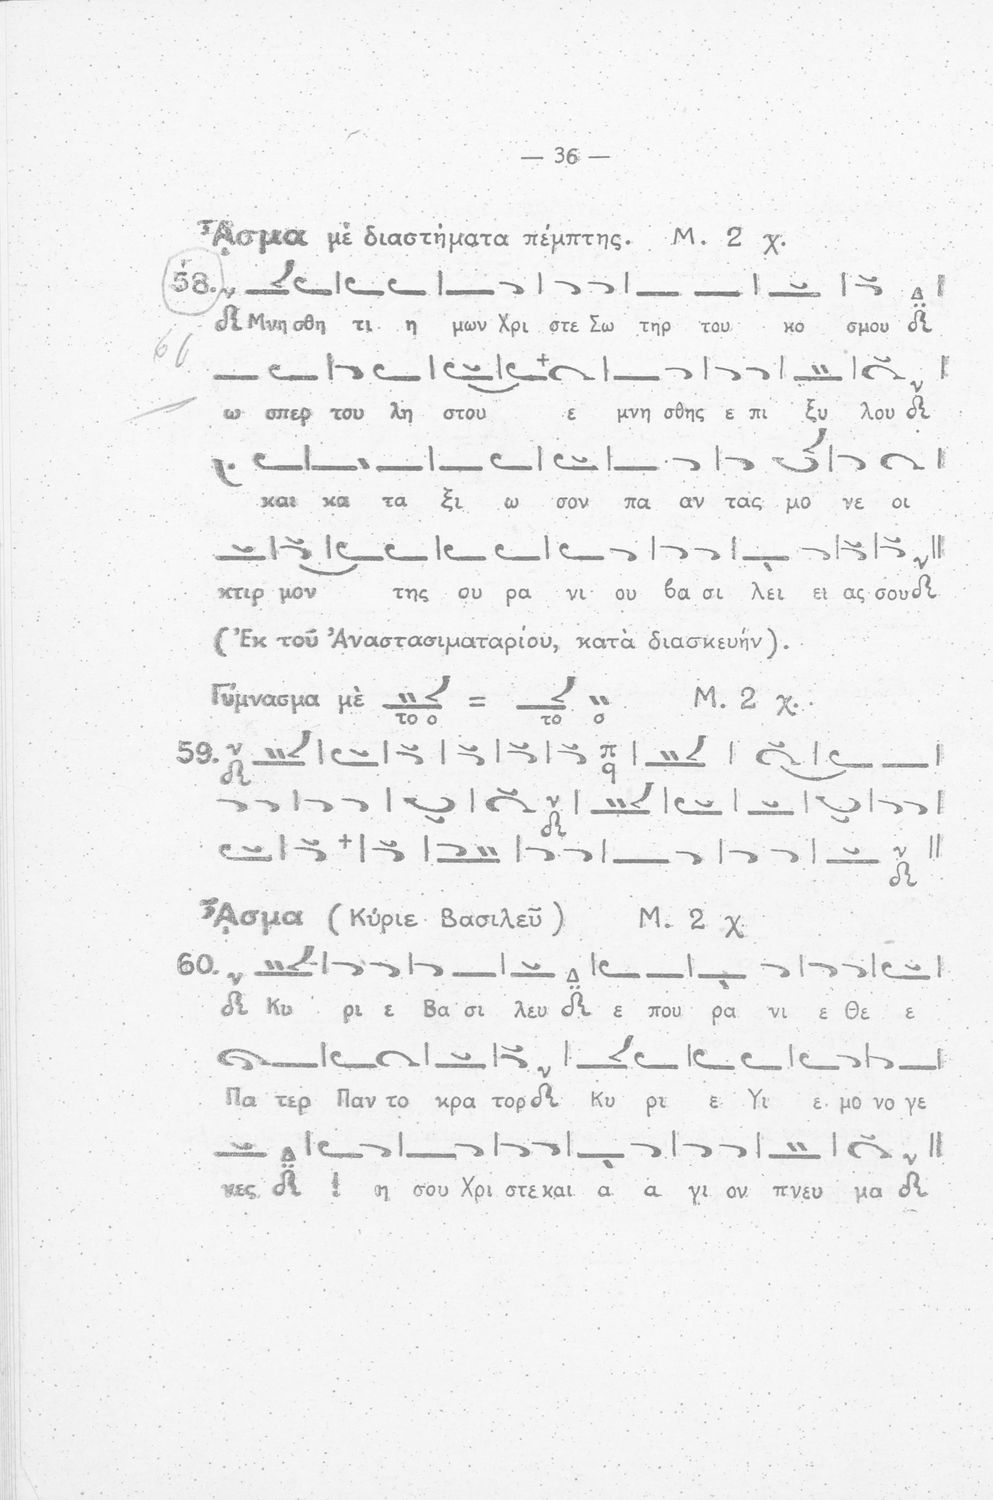 — 36 —
Ἆσμα μὲ διαστήματα πέμπτης. Μ. 2 χ.
58.
Μνη σθη τι η μων Χρι στε Σω τηρ του κο σμου
61
ω σπερ του λη στου ε μνη σθης ε πι ξυ λου
και κα τα ξι ω σον πα αν τας μο νε οι
κτιρ μον της ου ρα νι ου βα σι λει ει ας σου
(Ἐκ τοῦ Ἀναστασιματαρίου, κατὰ διασκευήν).
Γύμνασμα μὲ = Μ. 2 χ.
το ο το ο
59. ν π
δι q
ν
δι
ν
δι
Ἆσμα (Κύριε Βασιλεῦ) Μ. 2 χ
60.
Κυ ρι ε Βα σι λευ ε που ρα νι ε Θε ε
Πα τερ Παν το κρα τορ Κυ ρι ε Υι ε μο νο γε
νες Ι η σου Χρι στε και α α γι ον πνευ μα